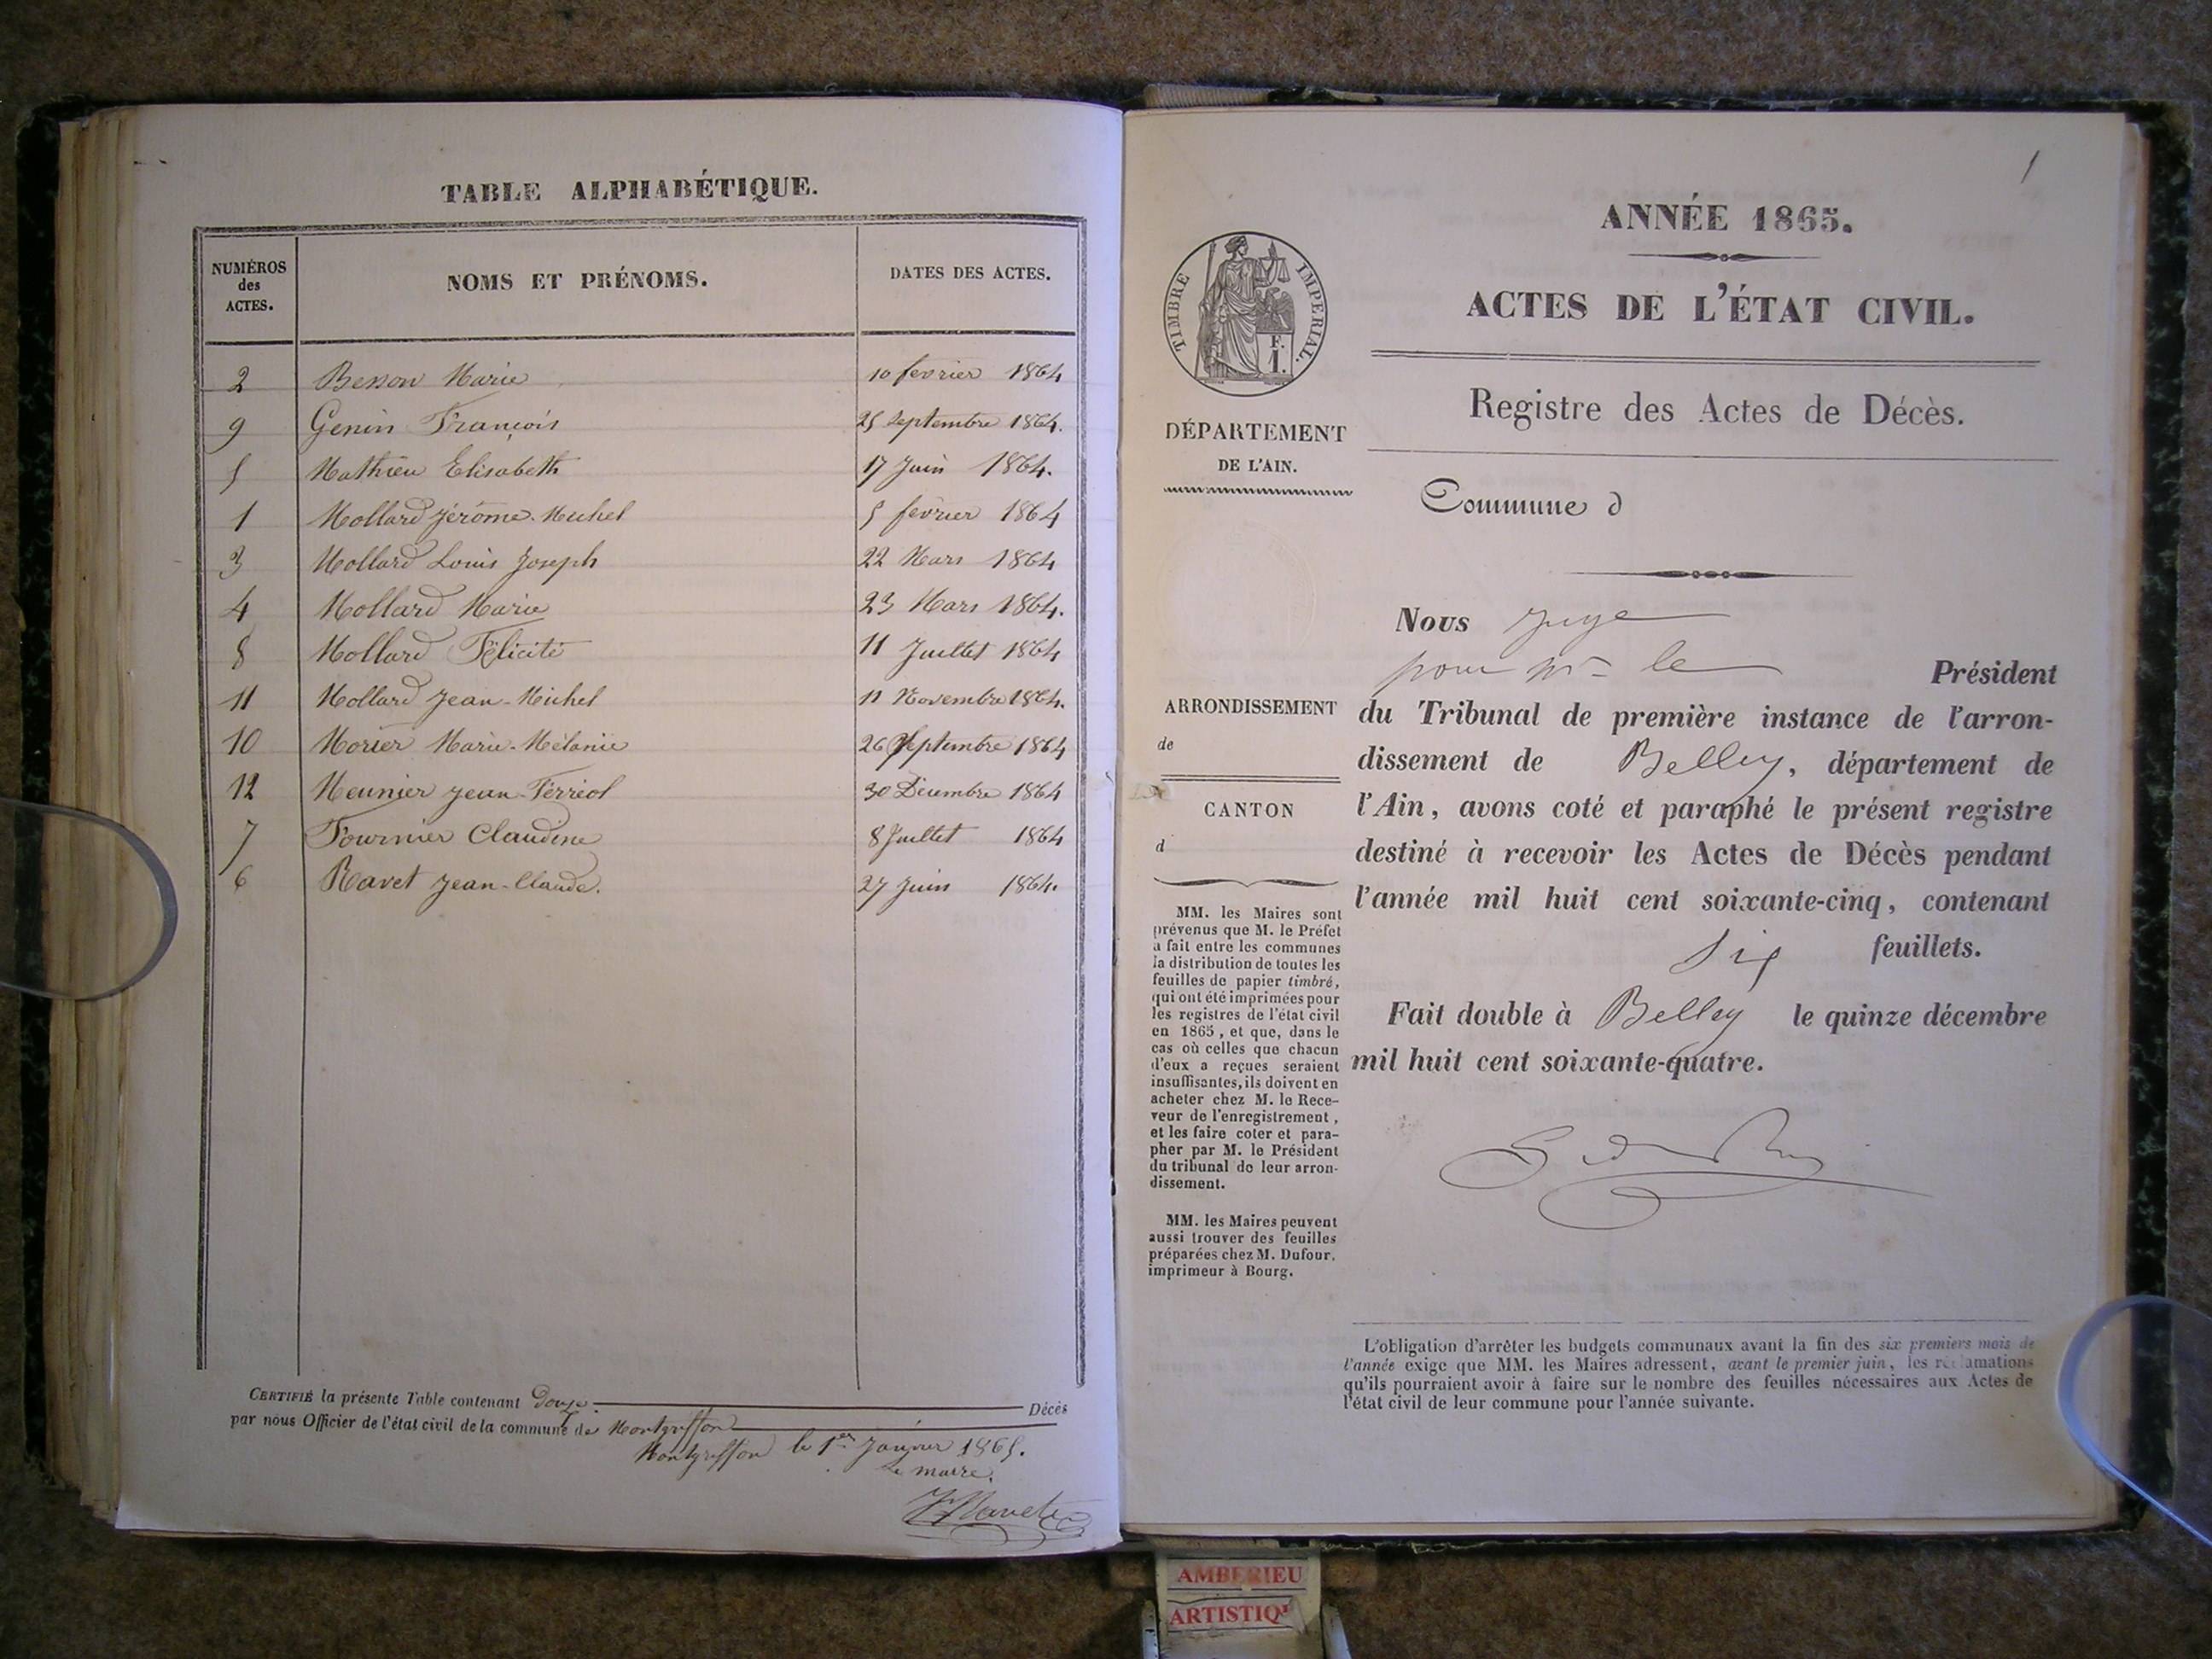 TABLE ALPHABÉTIQUE.
NUMÉROS des ACTES. NOMS ET PRÉNOMS. DATES DES ACTES.
2 Besson Marie 10 fevrier 1864
9 Genin François 25 Septembre 1864.
5 Mathieu Elisabeth 17 Juin 1864.
1 Mollard Jérôme-Michel 5 fevrier 1864
3 Mollard Louis Joseph 22 Mars 1864
4 Mollard Marie 23 Mars 1864.
8 Mollard Félicité 11 Juillet 1864
11 Mollard Jean-Michel 11 Novembre 1864.
10 Morier Marie-Mélanie 26 Septembre 1864
12 Meunier Jean-Férréol 30 Décembre 1864
7 Fournier Claudine 8 Juillet 1864
6 Ravet Jean-Claude. 27 Juin 1864.
CERTIFIÉ la présente Table contenant Douze Décès
par nous Officier de l'état civil de la commune de Montgriffon
Montgriffon le 1er Janvier 1865.
Le maire.
1
ANNÉE 1865.
ACTES DE L'ÉTAT CIVIL.
Registre des Actes de Décès.
TIMBRE IMPÉRIAL.
F.
1.
DÉPARTEMENT
DE L'AIN.
Commune d
ARRONDISSEMENT
de
CANTON
d
Nous Juge
pour Mr le Président
du Tribunal de première instance de l'arron-
dissement de Belley, département de
l'Ain, avons coté et paraphé le présent registre
destiné à recevoir les Actes de Décès pendant
l'année mil huit cent soixante-cinq, contenant
Six feuillets.
Fait double à Belley le quinze décembre
mil huit cent soixante-quatre.
MM. les Maires sont
prévenus que M. le Préfet
a fait entre les communes
la distribution de toutes les
feuilles de papier timbré,
qui ont été imprimées pour
les registres de l'état civil
en 1865, et que, dans le
cas où celles que chacun
d'eux a reçues seraient
insuffisantes, ils doivent en
acheter chez M. le Rece-
veur de l'enregistrement,
et les faire coter et para-
pher par M. le Président
du tribunal de leur arron-
dissement.
MM. les Maires peuvent
aussi trouver des feuilles
préparées chez M. Dufour,
imprimeur à Bourg.
L'obligation d'arrêter les budgets communaux avant la fin des six premiers mois de
l'année exige que MM. les Maires adressent, avant le premier juin, les réclamations
qu'ils pourraient avoir à faire sur le nombre des feuilles nécessaires aux Actes de
l'état civil de leur commune pour l'année suivante.
AMBERIEU
ARTISTIQ